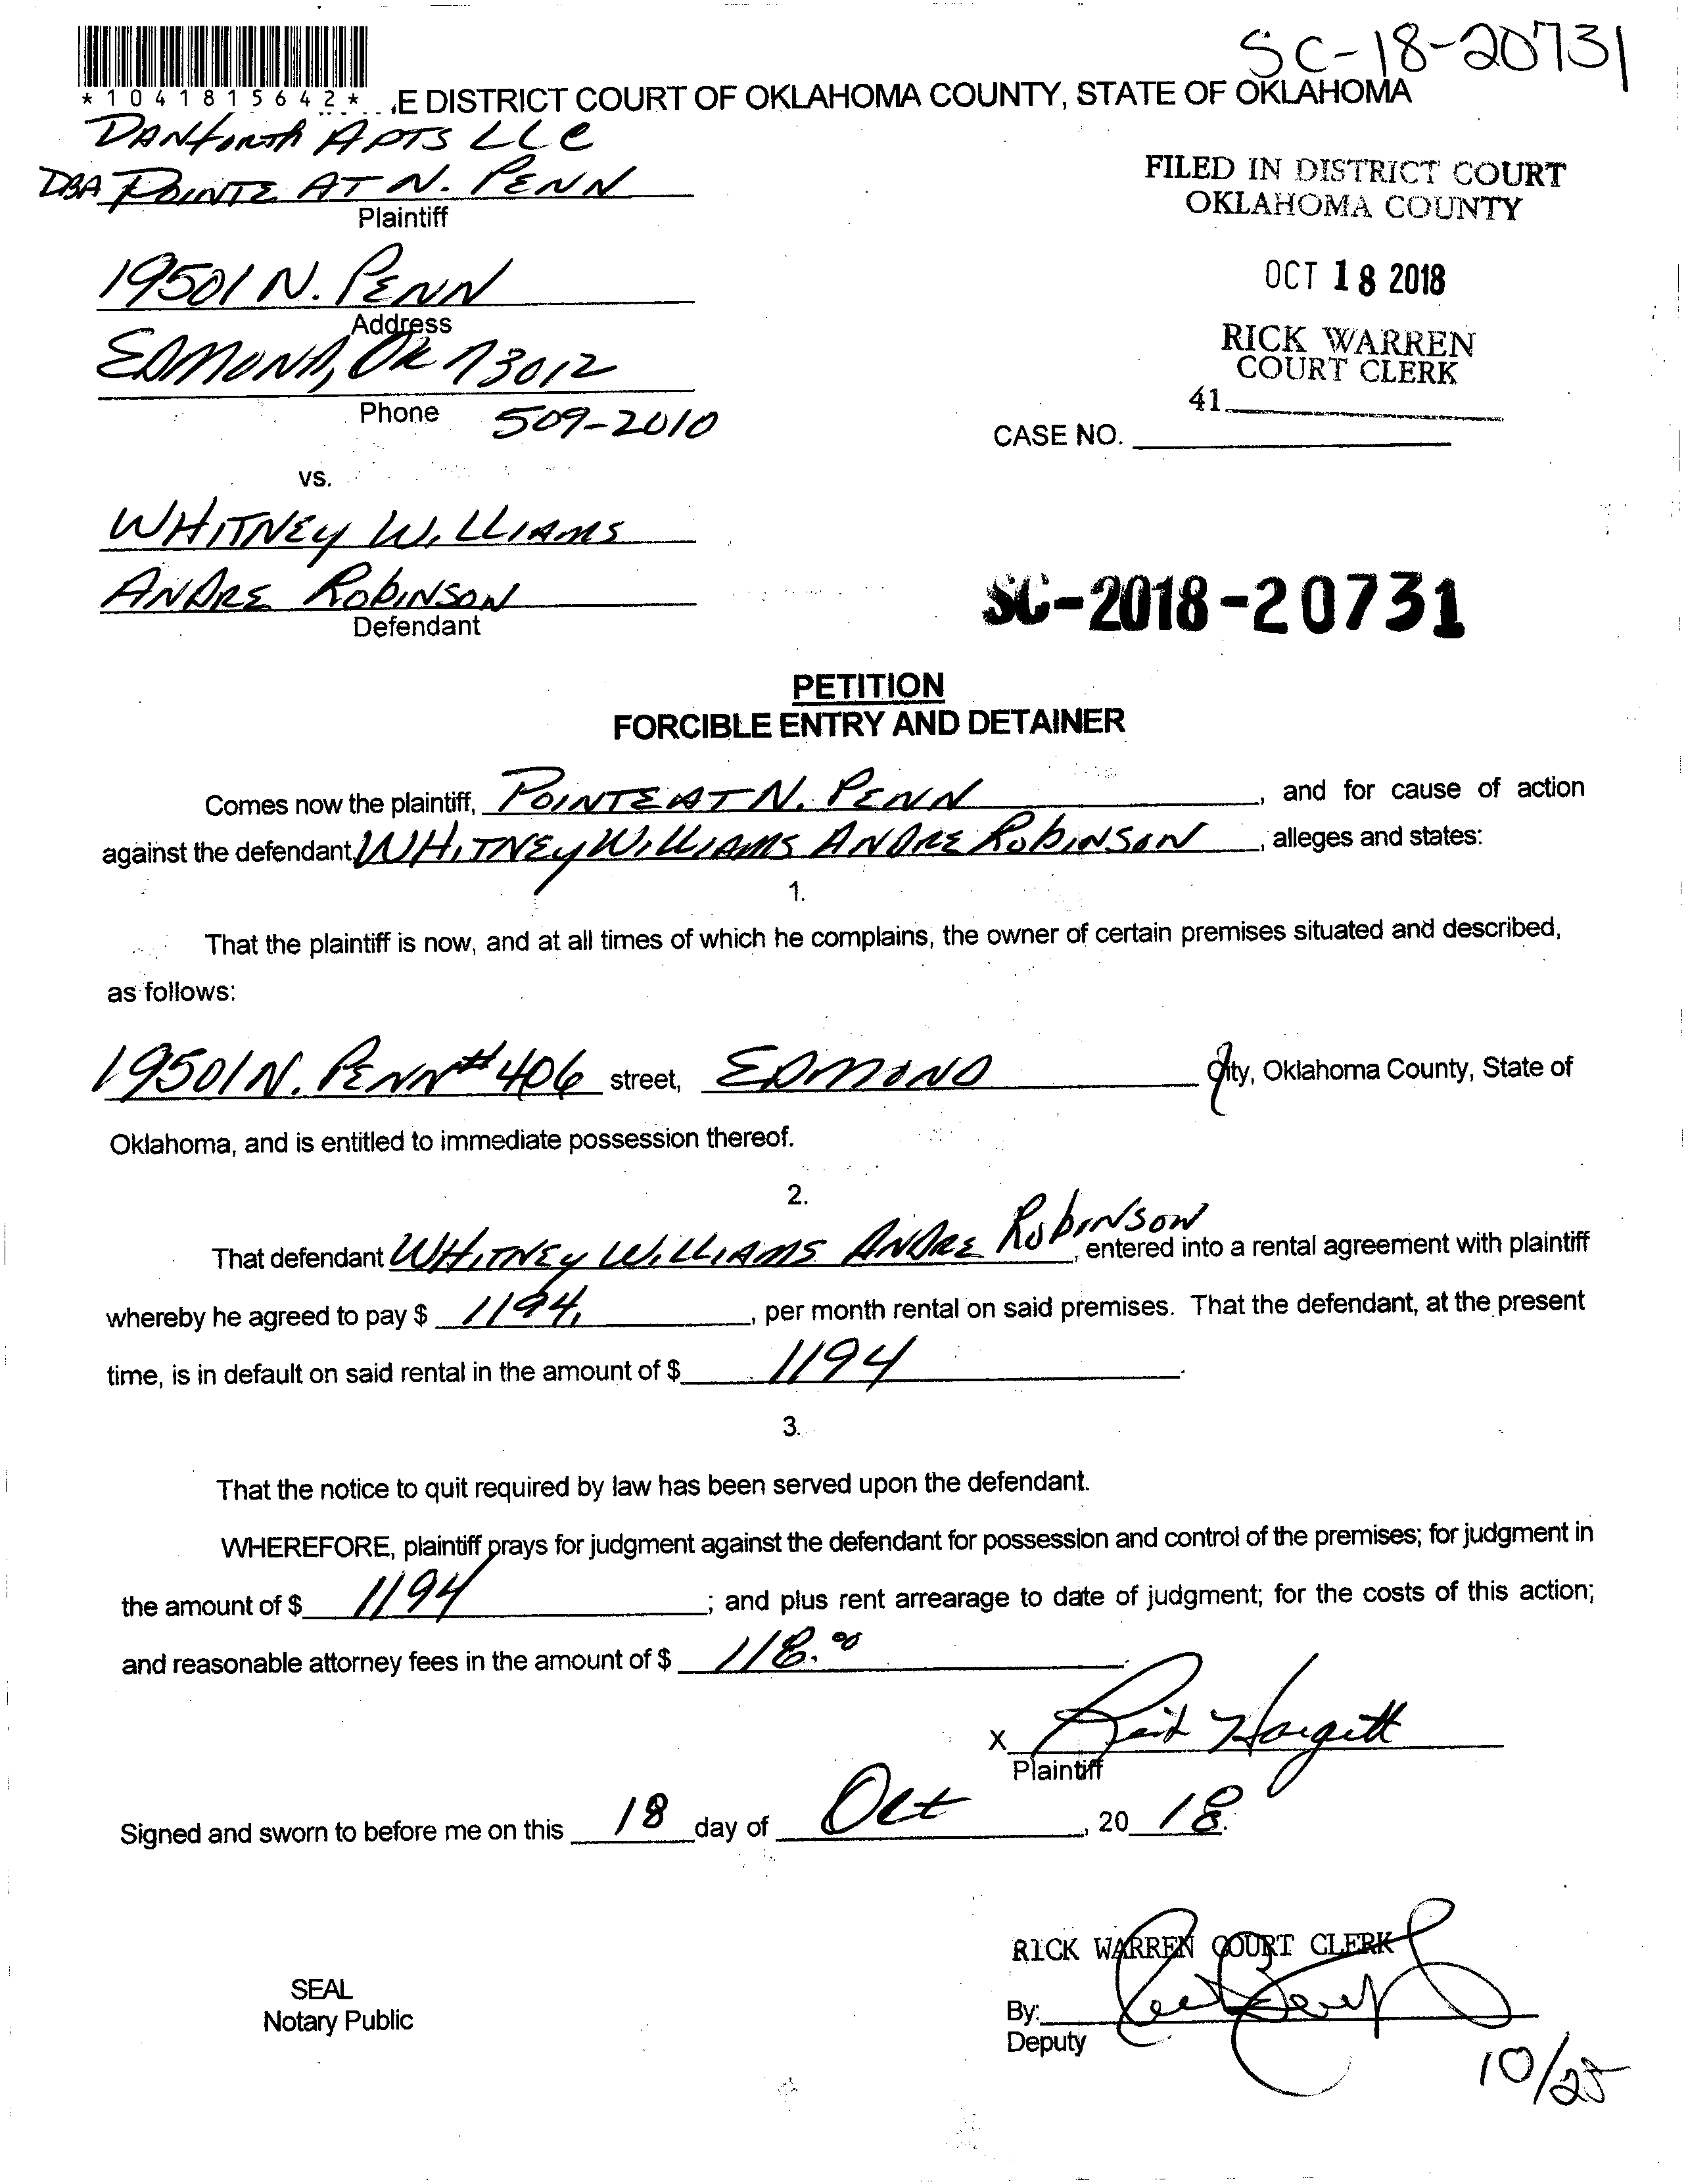 SC-18-20731
*1041815642*
E DISTRICT COURT OF OKLAHOMA COUNTY, STATE OF OKLAHOMA
DANforth APTS LLC
DBA POINTE AT N. PENN
Plaintiff
FILED IN DISTRICT COURT
OKLAHOMA COUNTY
19501 N. PENN
Address
OCT 18 2018
EDMOND, OK 73012
RICK WARREN
COURT CLERK
Phone 509-2010
41
CASE NO.
vs.
WHITNEY WILLIAMS
ANDRE RobINSON
Defendant
SC-2018-20731
PETITION
FORCIBLE ENTRY AND DETAINER
Comes now the plaintiff, POINTE AT N. PENN, and for cause of action
against the defendant WHITNEY WILLIAMS ANDRE RobINSON, alleges and states:
1.
That the plaintiff is now, and at all times of which he complains, the owner of certain premises situated and described,
as follows:
19501 N. PENN #406 street, EDMOND City, Oklahoma County, State of
Oklahoma, and is entitled to immediate possession thereof.
2.
That defendant WHITNEY WILLIAMS ANDRE RobINSON, entered into a rental agreement with plaintiff
whereby he agreed to pay $ 1194, per month rental on said premises. That the defendant, at the present
time, is in default on said rental in the amount of $ 1194.
3.
That the notice to quit required by law has been served upon the defendant.
WHEREFORE, plaintiff prays for judgment against the defendant for possession and control of the premises; for judgment in
the amount of $ 1194; and plus rent arrearage to date of judgment; for the costs of this action;
and reasonable attorney fees in the amount of $ 118.00.
X Hargett
Plaintiff
Signed and sworn to before me on this 18 day of Oct, 20 18.
RICK WARREN COURT CLERK
SEAL
Notary Public
By:
Deputy
10/25